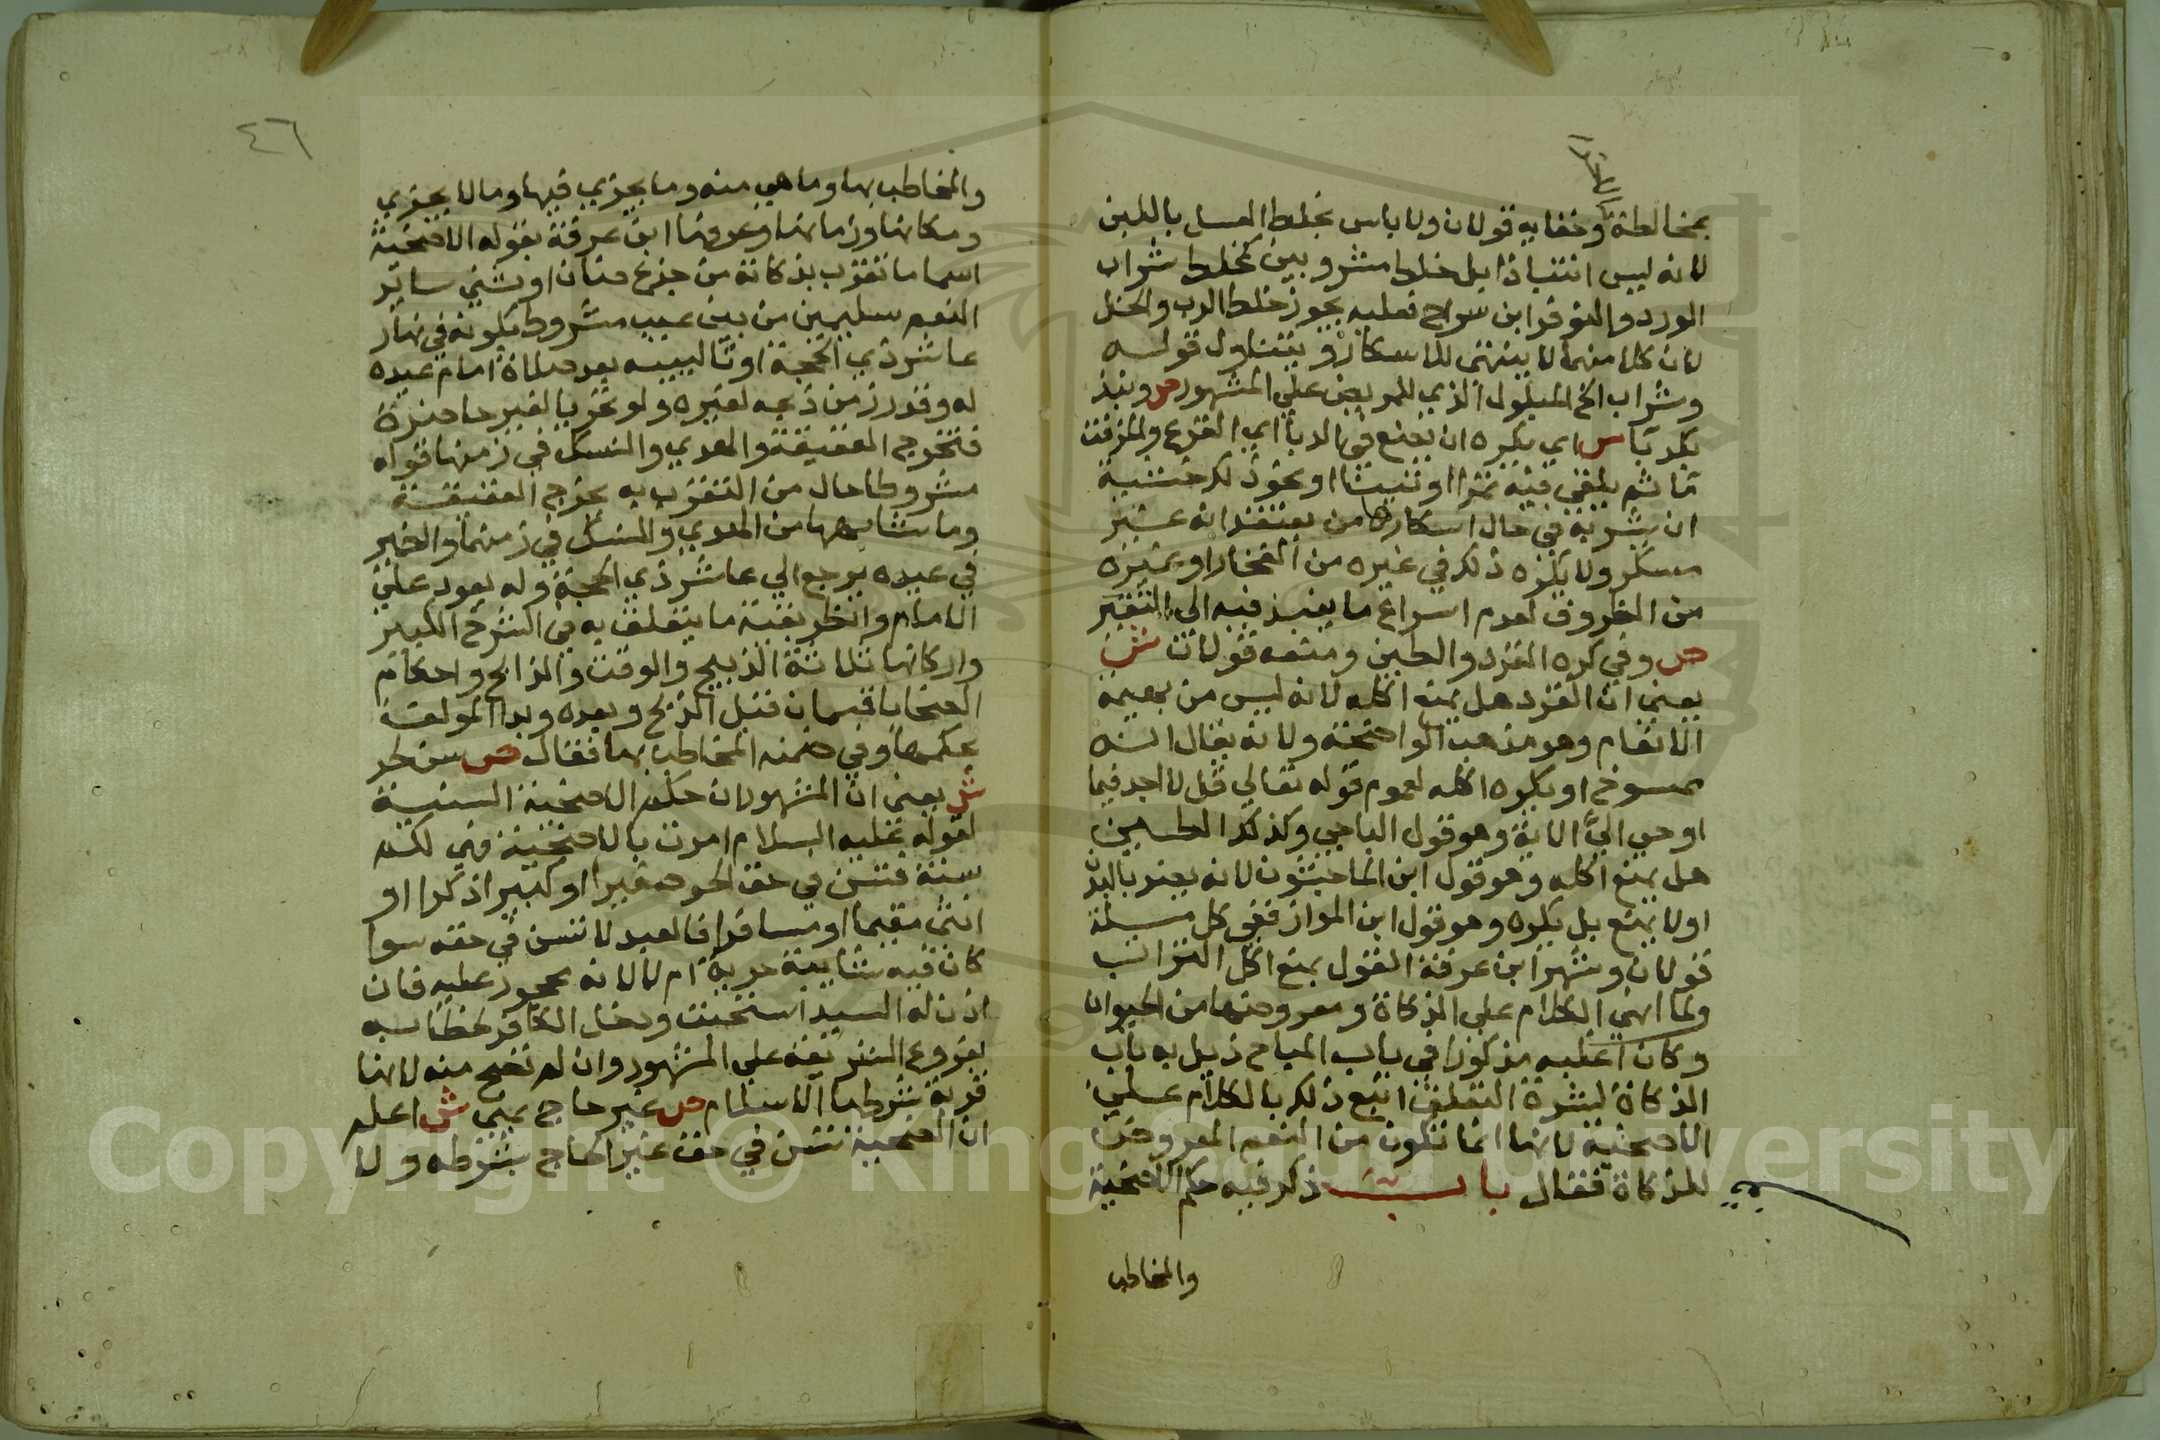 بمخالطة وخفايه قولان ولا باس بخلط العسل باللبن
لانه ليس انتباذا بل خلط مشروبين كخلط شراب
الورد والنوفر ابن سراج فعليه يجوز خلط الرب والخل
لان كلا منهما لا ينتهي للاسكار ويتناول قوله
وشراب الخ المبلول الذي للمريض علي المشهور ص ونبذ
بكدبا ش اي يكره ان يوضع في الدبا اي القرع والمزفت
ما ثم يلقي فيه تمرا او تينا او نحو ذلك خشية
ان يشربه في حال اسكاره من يعتقد انه غير
مسكر ولا يكره ذلك في غيره من الفخار او غيره
من الظروف لعدم اسراع ما ينبذ فيه الي التغير
ص وفي كره القرد والطين ومنعه قولان ش
يعني ان القرد هل يمنع اكله لانه ليس من بهيمة
الانعام وهو مذهب الواضحة ولانه يقال انه
ممسوخ او يكره اكله لعموم قوله تعالي قل لا اجد فيما
اوحي اليّ الاية وهو قول الباجي وكذلك الطين
هل يمنع اكله وهو قول ابن الماجشون لانه يضر بالبدن
او لا يمنع بل يكره وهو قول ابن المواز ففي كل مسئلة
قولان وشهر ابن عرفة القول بمنع اكل التراب
ولما انهي الكلام علي الذكاة ومعروضها من الحيوان
وكان اغلبه مذكورا في باب المباح ذيل به باب
الذكاة لشدة التعلق اتبع ذلك بالكلام علي
الاضحية لانها انما تكون من النعم المعروض
للذكاة فقال باب ذكر فيه حكم الاضحية
والمخاطب
٤٦
والمخاطب بها وما هي منه وما يجزي فيها وما لا يجزي
ومكانها وزمانها وعرفها ابن عرفة بقوله الاضحية
اسما ما تقرب بذكاته من جذع ضان او ثني سائر
النعم سليمين من بين عيب مشروط بكونه في نهار
عاشر ذي الحجة او تالييه بعد صلاة امام عيده
له وقدر زمن ذبحه لغيره ولو تحريا لغير حاضره
فتخرج العقيقة والهدي والنسك في زمنها قوله
مشروطا حال من التقرب به يخرج العقيقة
وما شابهها من الهدي والنسك في زمنها والضمير
في عيده يرجع الي عاشر ذي الحجة وله يعود علي
الامام وانظر بقية ما يتعلق به في الشرح الكبير
واركانها ثلاثة الذبيح والوقت والذابح واحكام
الضحايا قسمان قبل الذبح وبعده وبدا المولف
بحكمها وفي ضمنه المخاطب بها فقال ص سن لحر
ش يعني ان المشهور ان حكم الاضحية السنية
لقوله عليه السلام امرت بالاضحية فهي لكم
سنة فتسن في حق الحر صغيرا او كبيرا ذكرا او
انثي مقيما او مسافرا فالعبد لا تسن في حقه سوا
كان فيه شايبة حرية ام لا لانه محجور عليه فان
اذن له السيد استحبت ودخل الكافر لخطابه
بفروع الشريعة علي المشهور وان لم تصح منه لانها
قربة شرطها الاسلام ص غير حاج بمني ش اعلم
ان الضحية تسن في حق غير الحاج بشرطه ولا
Copyright © King Saud University